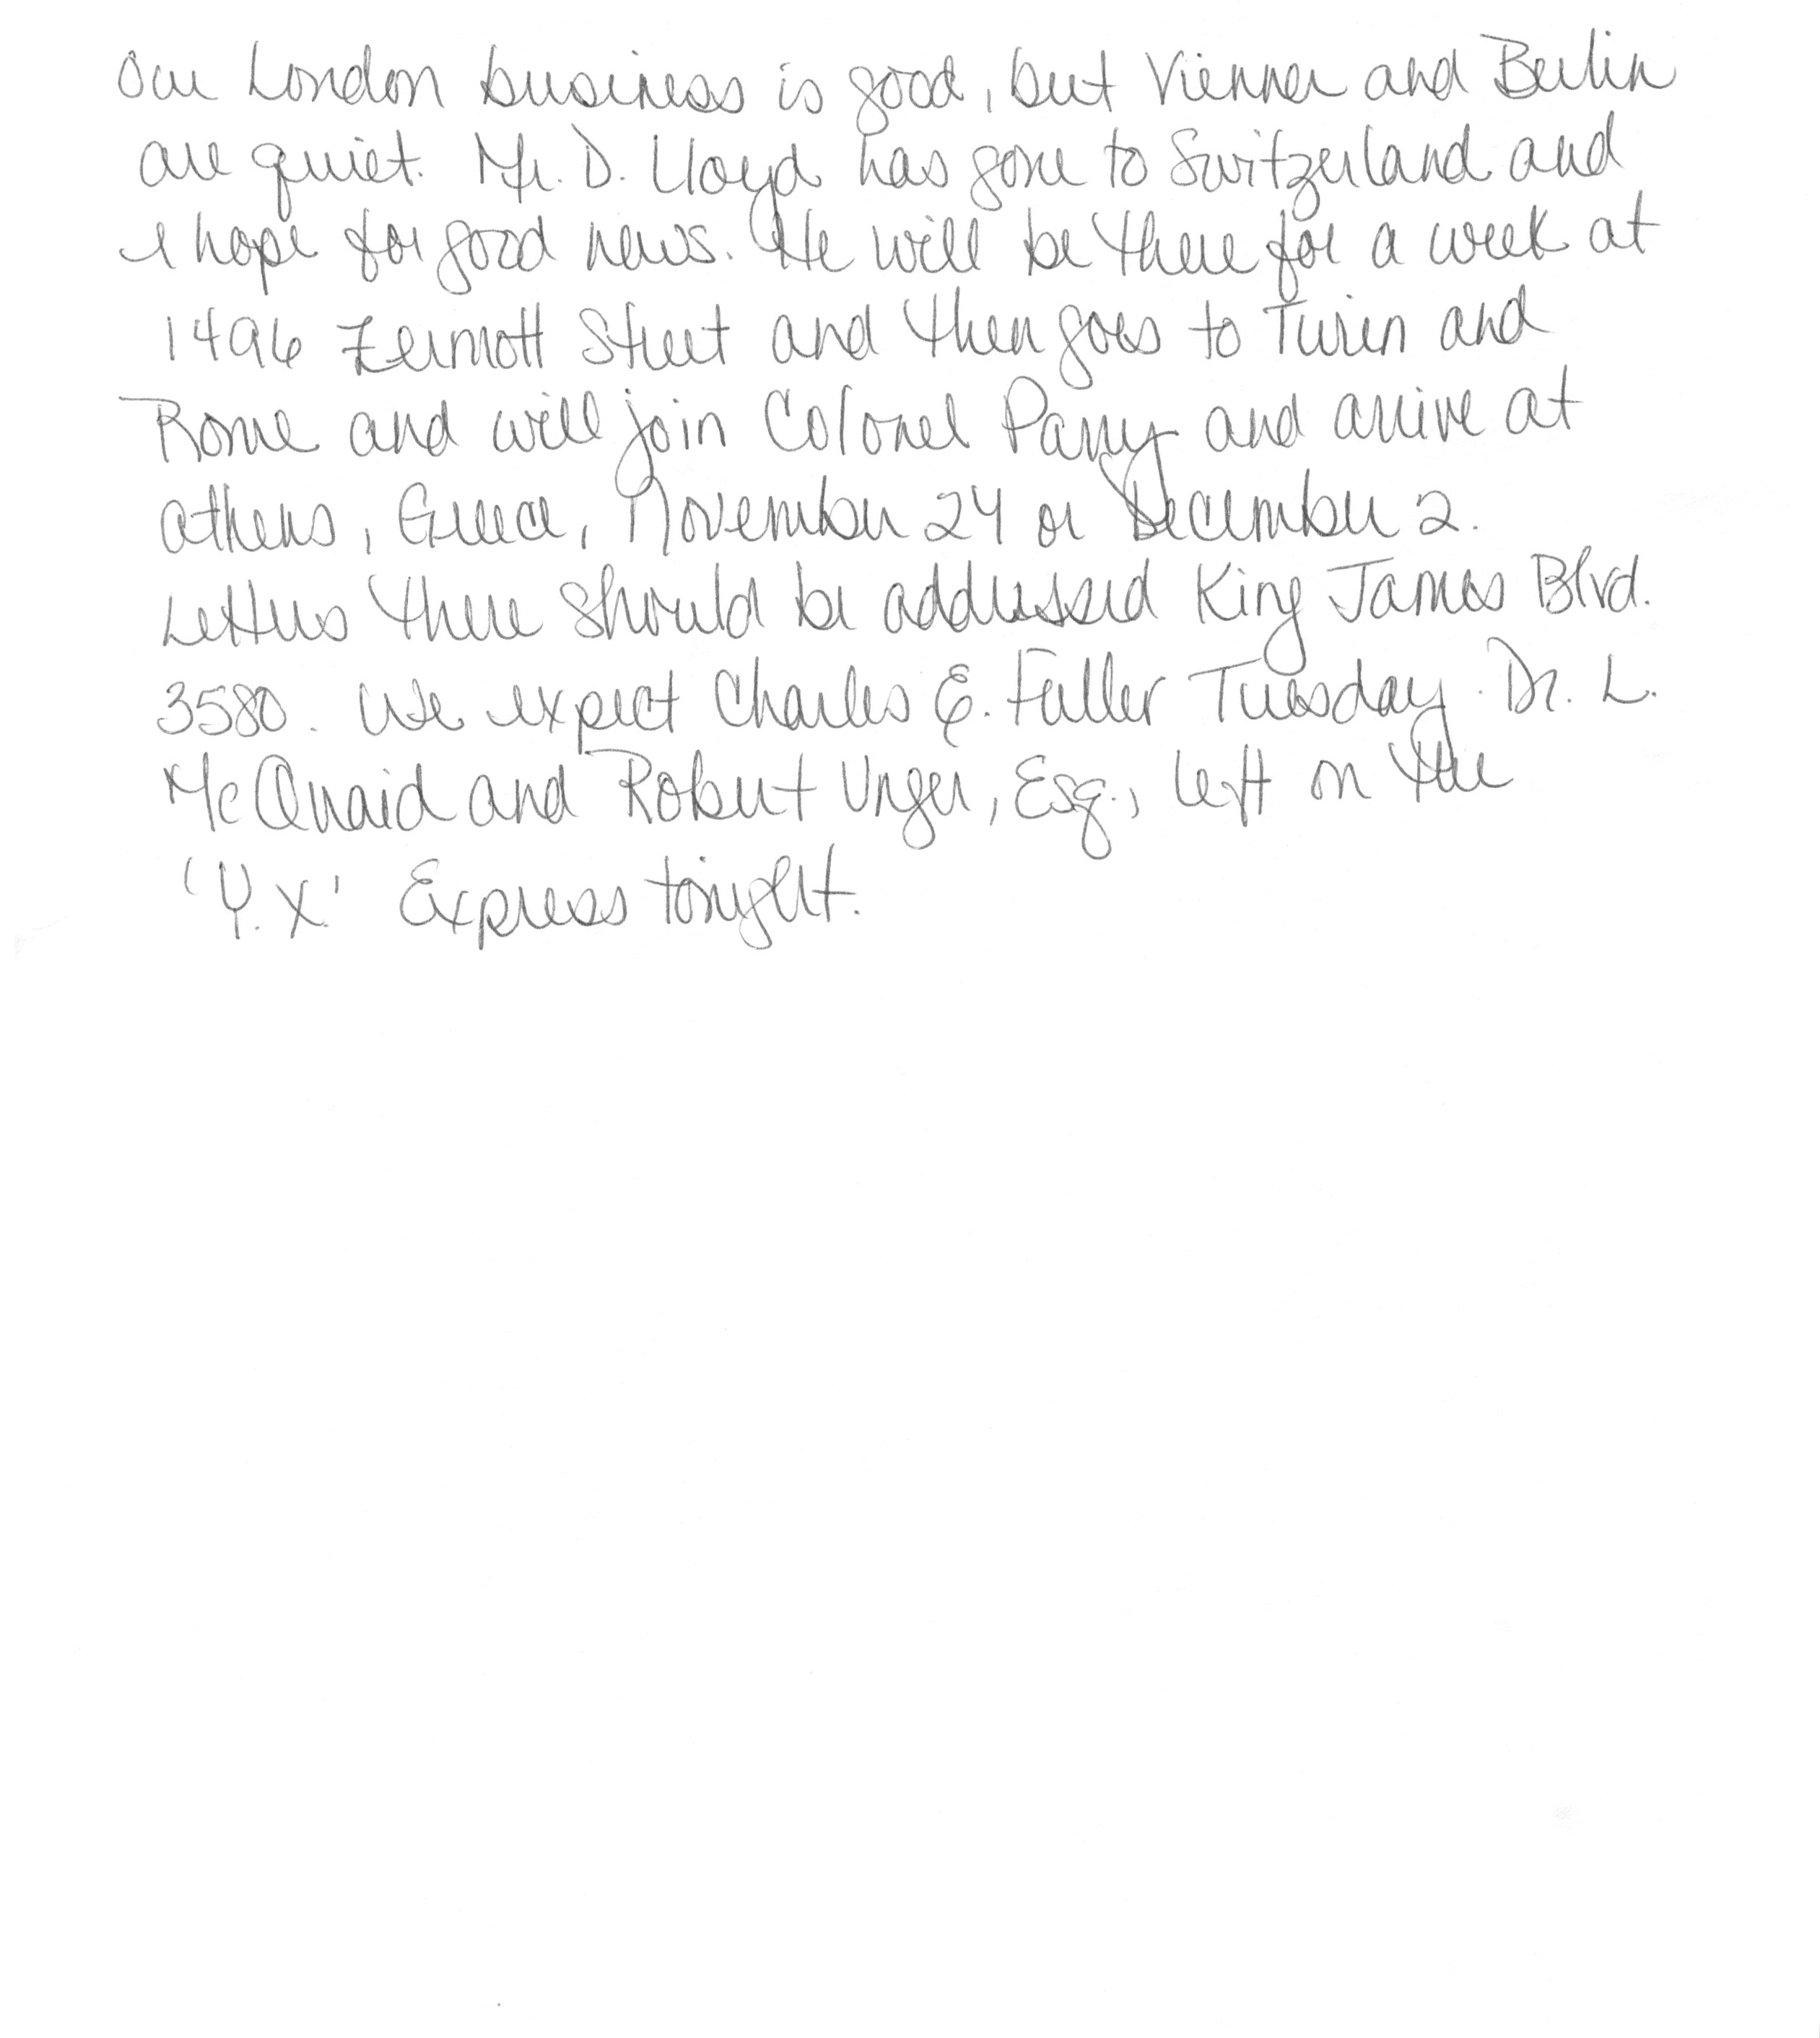 Our London business is good, but Vienna and Berlin
are quiet. Mr. D. Lloyd has gone to Switzerland and
I hope for good news. He will be there for a week at
1496 Zermott Street and then goes to Turin and
Rome and will join Colonel Parry and arrive at
Athens, Greece, November 24 or December 2.
Letters there should be addressed King James Blvd.
3580. We expect Charles E. Fuller Tuesday. Dr. L.
McQuaid and Robert Unger, Esq., left on the
'Y.X.' Express tonight.